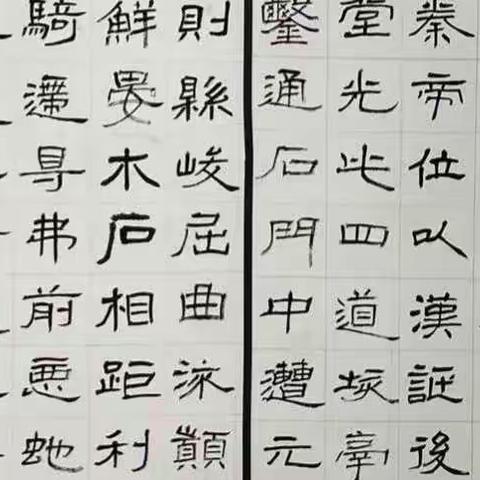 秦帝位以漢詆後
堂光此四道垓鬲
鑿通石門中遭元
則縣峻屈曲流顛
鮮晏木石相距利
騎遰㝵弗前惡虵